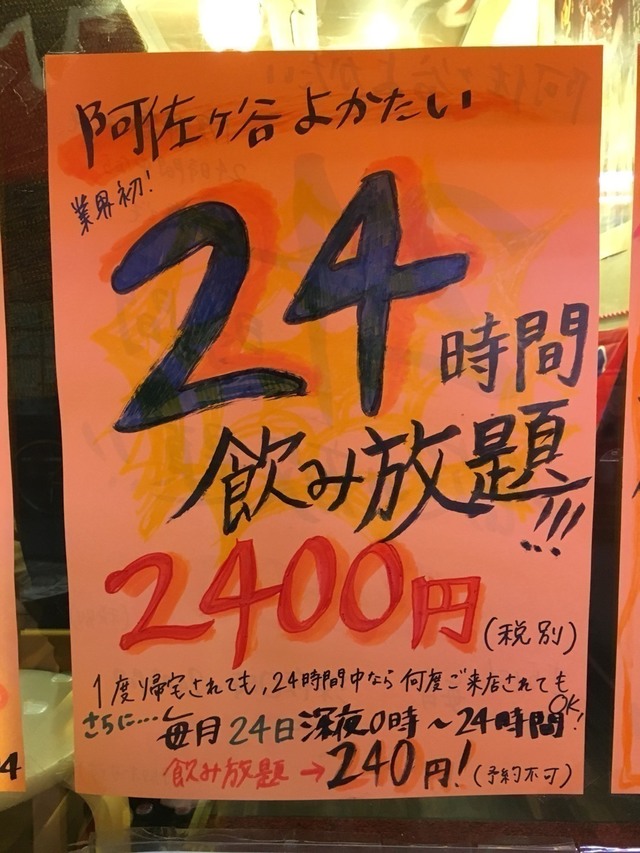 阿佐ヶ谷よかたい
業界初!
24
時間
飲み放題!!!
2400円(税別)
1度帰宅されても,24時間中なら何度ご来店されてもOK!
さらに…毎月24日深夜0時~24時間
飲み放題→240円!(予約不可)
4